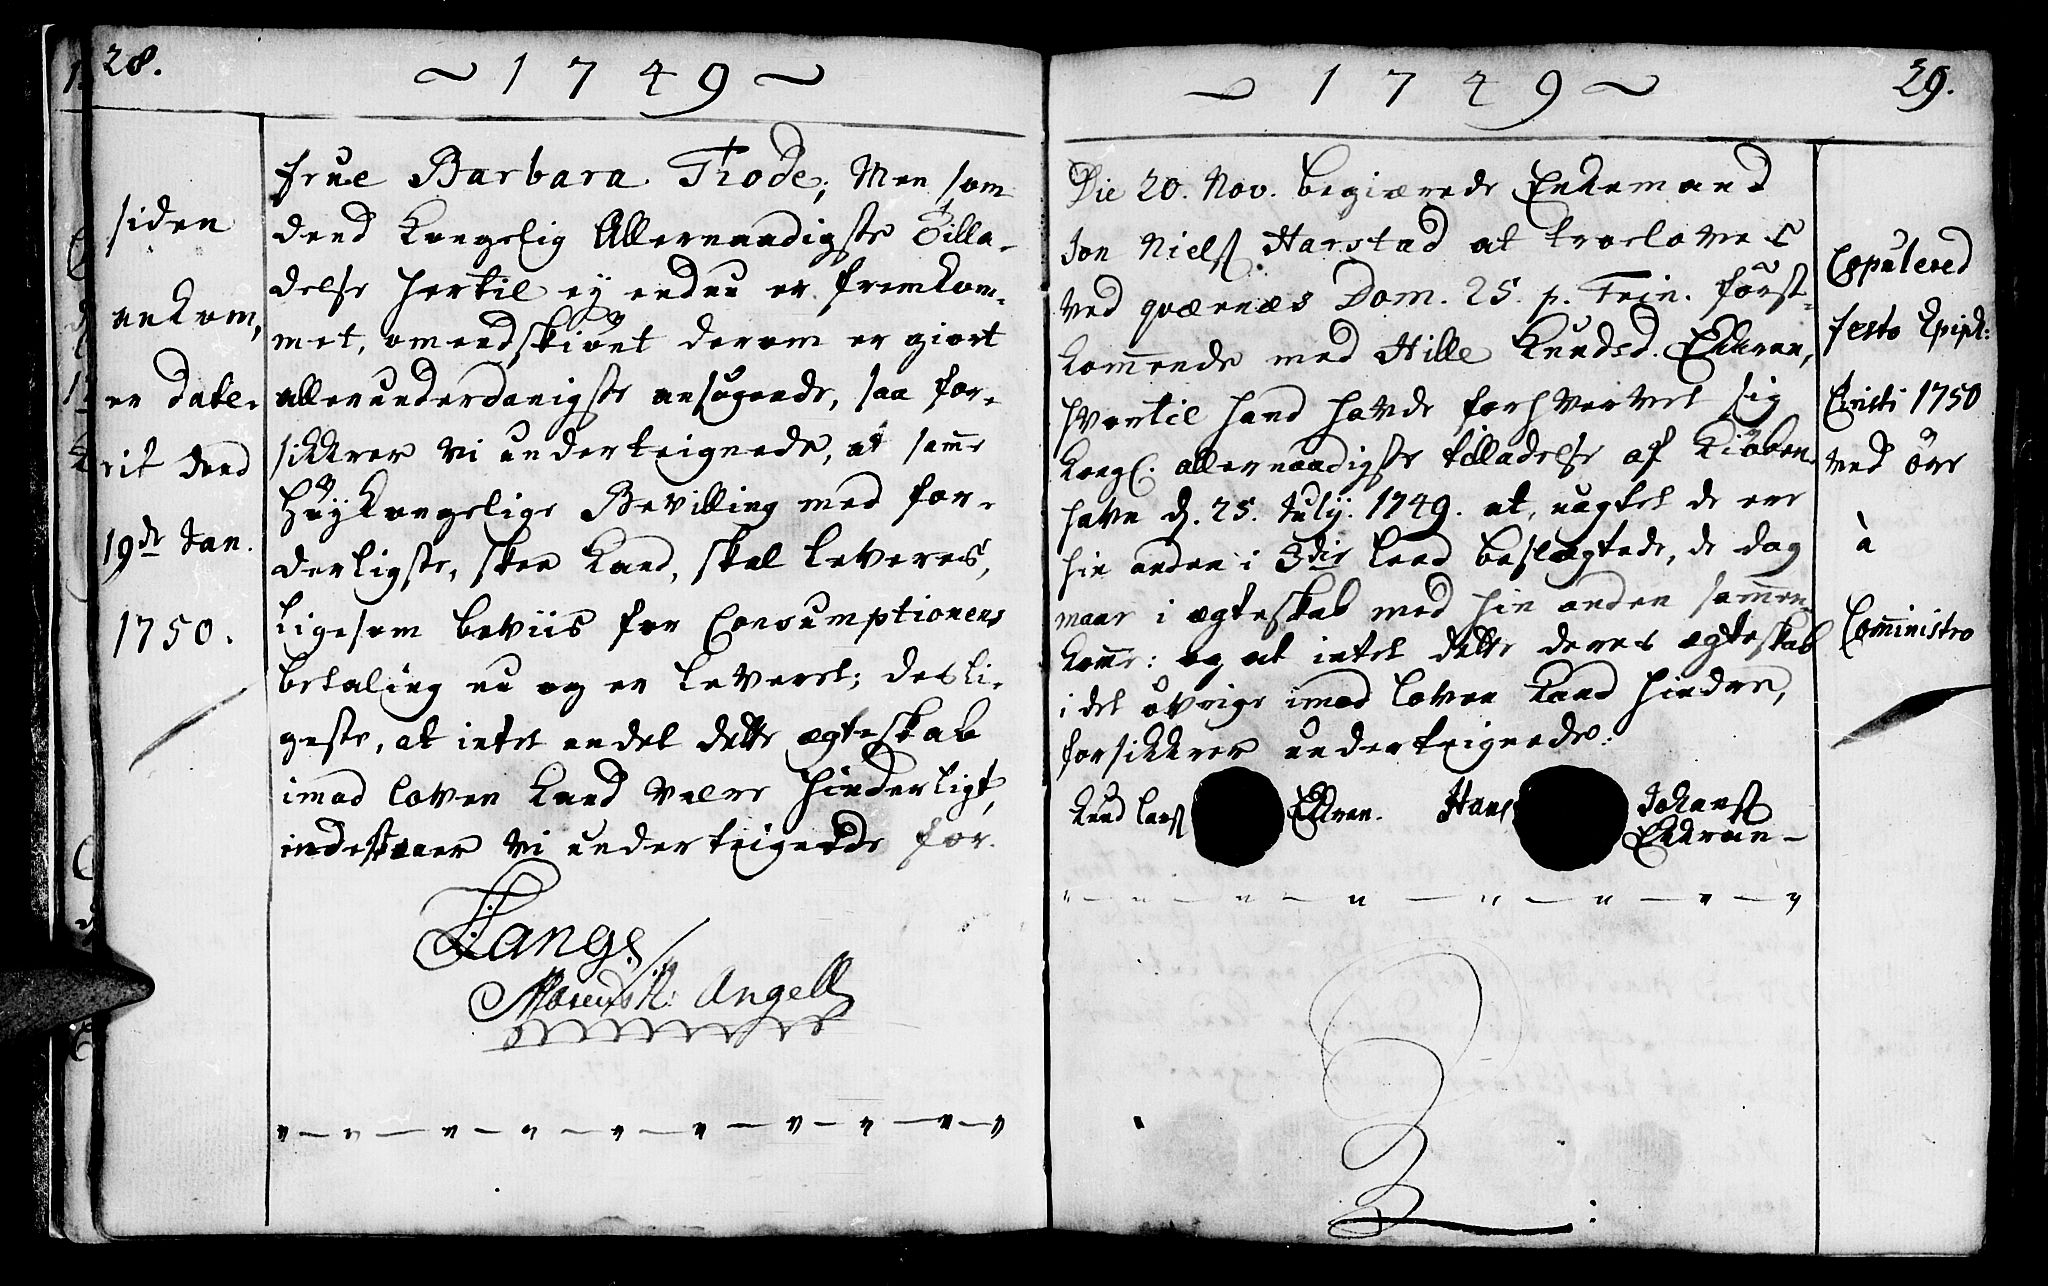 28.
~ 1 7 4 9 ~
siden
ankom,
er date-
rit dend
19de Jan.
1750.
frue Barbara Thode; Men som
dend Kongelig Allernaadigste Tilla-
delse hertil ey endnu er fremkom-
met, omendskiönt derom er giort
allerunderdanigste ansögende, saa for-
sikkrer vi underteignede, at samme
Höykongelige Bevilling med for-
derligste, skee kand, skal leveres,
ligesom beviis for Consumptionens
betaling nu og er leveret; desli-
geste, at intet andet dette ægteskab
imod loven kand være hinderligt,
indestaaer vi underteignede for.
Lange
Marcus K: Angell
~ 1 7 4 9 ~
29.
Die 20. Nov. begiærede Enkemand
Jon Nielss. Harstad at troeloves
ved qværnæs Dom. 25. p. Trin. först-
kommende med Hille Knudsd. Eckran,
hvortil hand havde forhvervet sig
kongl. allernaadigste tilladelse af Kiöben-
havn d. 25. Julij. 1749. at, uagtet de ere
hin anden i 3die leed beslægtede, de dog
maae i ægteskab med hin anden sammen-
komme: og at intet dette deres ægteskab
i det övrige imod loven kand hindre,
forsikkrer underteignede:
Knud larss. Eckran. Hans Johanss.
Eckran
Copulered
festo Epiph:
Christi 1750
ved öre
à
Comministro